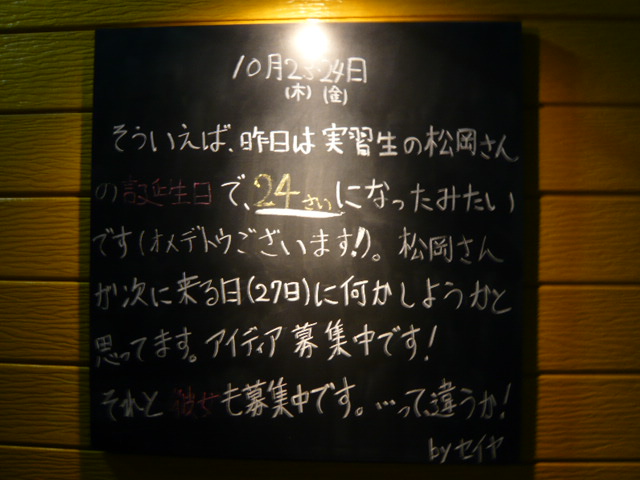 10月23・24日
(木) (金)
そういえば、昨日は実習生の松岡さん
の誕生日で、24さいになったみたい
です(オメデトウございます!!)。松岡さん
が次に来る日(27日)に何かしようかと
思ってます。アイディア募集中です!
それと彼女も募集中です。…って、違うか!
byセイヤ